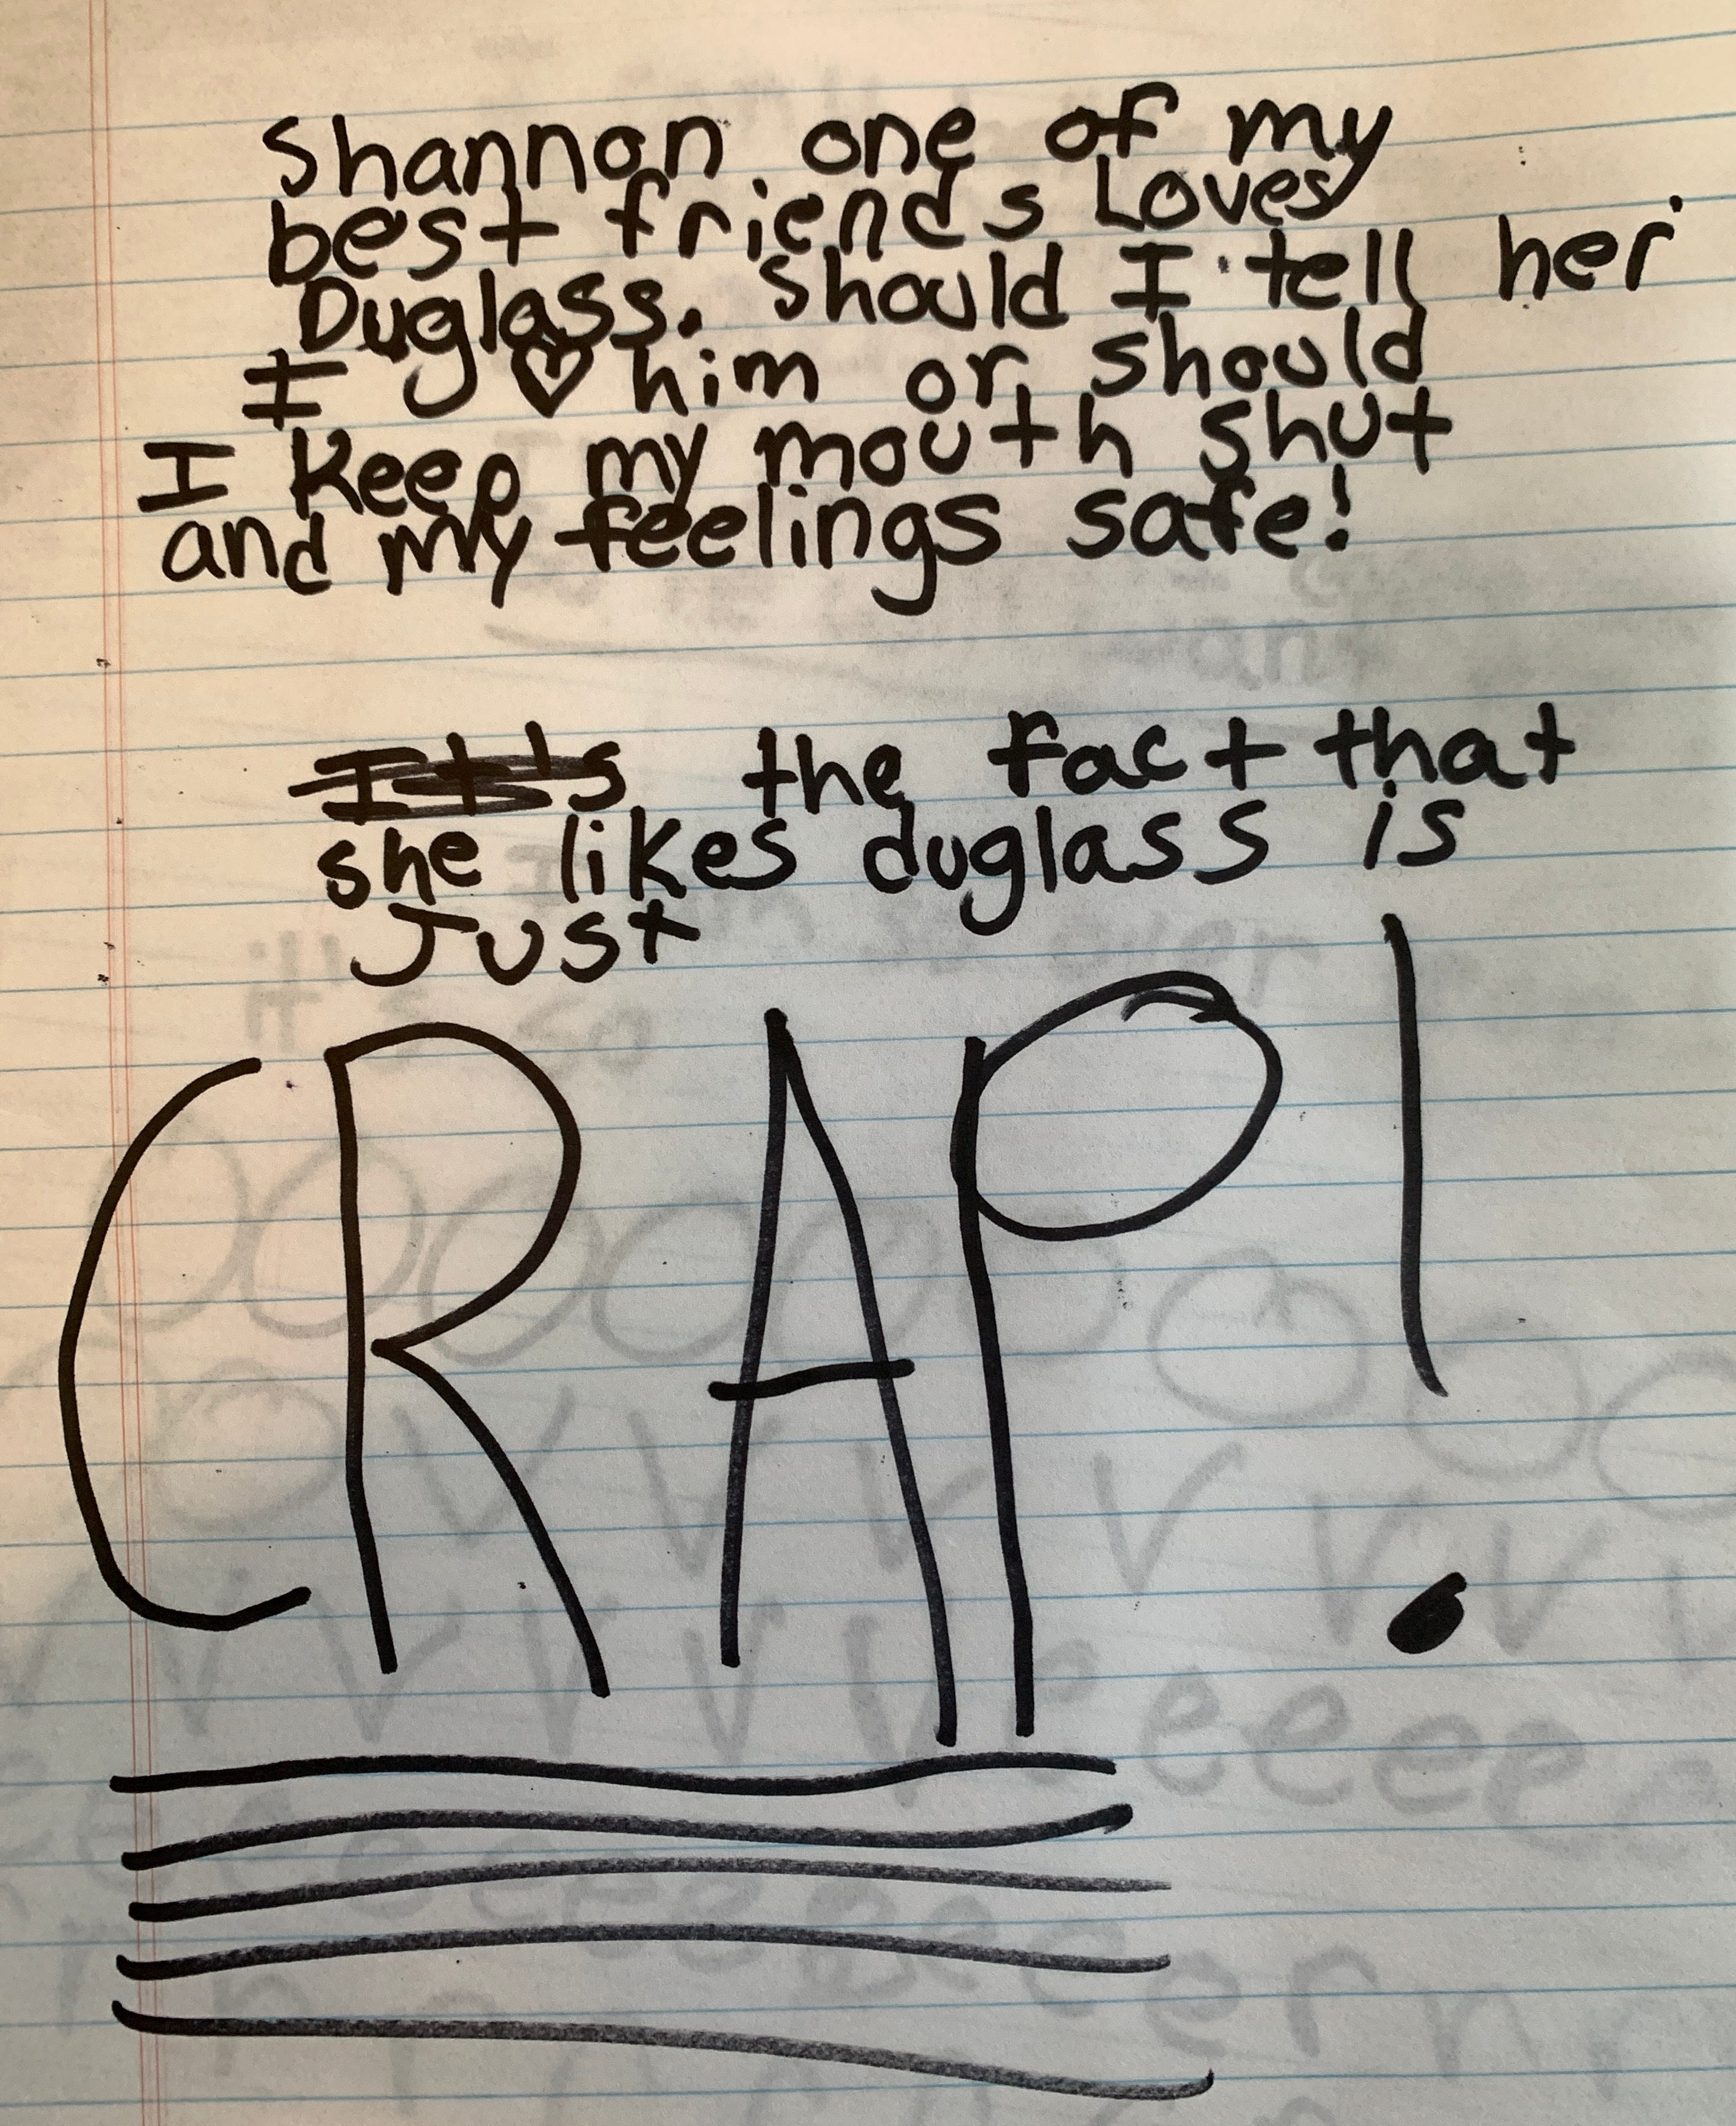 Shannon one of my
best friends Loves
Duglass. Should I tell her
I ♡ him or should
I keep my mouth shut
and my feelings safe!
It's the fact that
she likes duglass is
Just
CRAP!